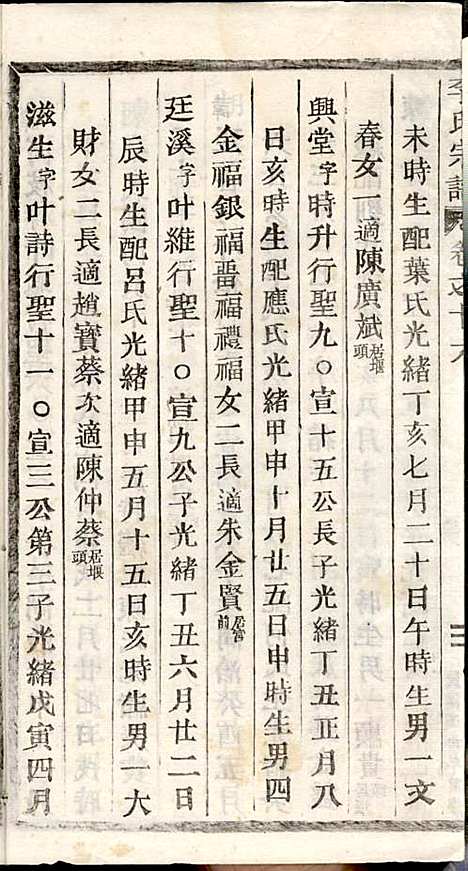 李氏宗譜 卷之十六
未時生配葉氏光緒丁亥七月二十日午時生男一文
春女一適陳廣斌居堰頭
興堂字時升行聖九〇宣十五公長子光緒丁丑正月八
日亥時生配應氏光緒甲申十月廿五日申時生男四
金福銀福晋福禮福女二長適朱金賢居官前
廷溪字叶維行聖十〇宣九公子光緒丁丑六月廿二日
辰時生配呂氏光緒甲申五月十五日亥時生男一大
財女二長適趙寶蔡次適陳仲蔡居堰頭
滋生字叶詩行聖十一〇宣三公第三子光緒戊寅四月